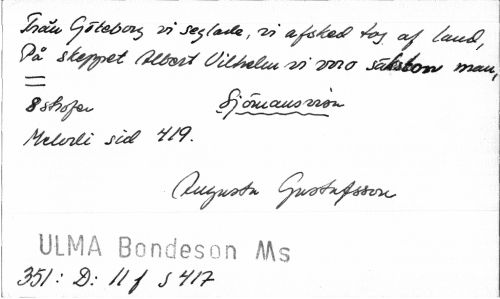 Från Göteborg vi seglade, vi afsked tog af land,
På skeppet Albert Vilhelm vi voro sexton man,
8 strofer Sjömansvisa
Melodi sid 419.
Augusta Gustafsson
ULMA Bondeson Ms
351: D: 11 f s 417